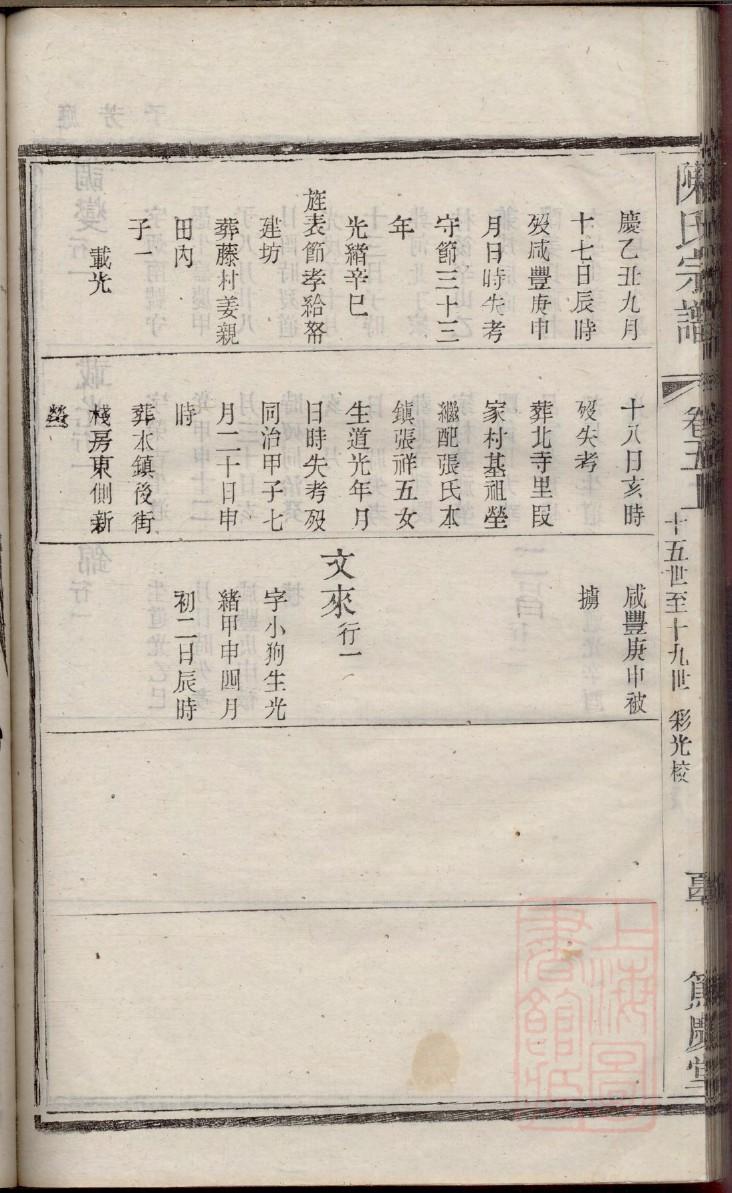 陳氏宗譜
卷五十
十五世至十九世 彩光校
篤慶堂
慶乙丑九月
十七日辰時
歿咸豐庚申
月日時失考
守節三十三
年
光緒辛巳
旌表節孝給帑
建坊
葬藤村姜親
田內
子一
載光
十八日亥時
歿失考
葬北寺里段
家村基祖塋
繼配張氏本
鎮張祥五女
生道光年月
日時失考歿
同治甲子七
月二十日申
時
葬水鎮後街
棧房東側新
塋
咸豐庚申被
擄
文來行一
字小狗生光
緒甲申四月
初二日辰時
上海圖
書館藏